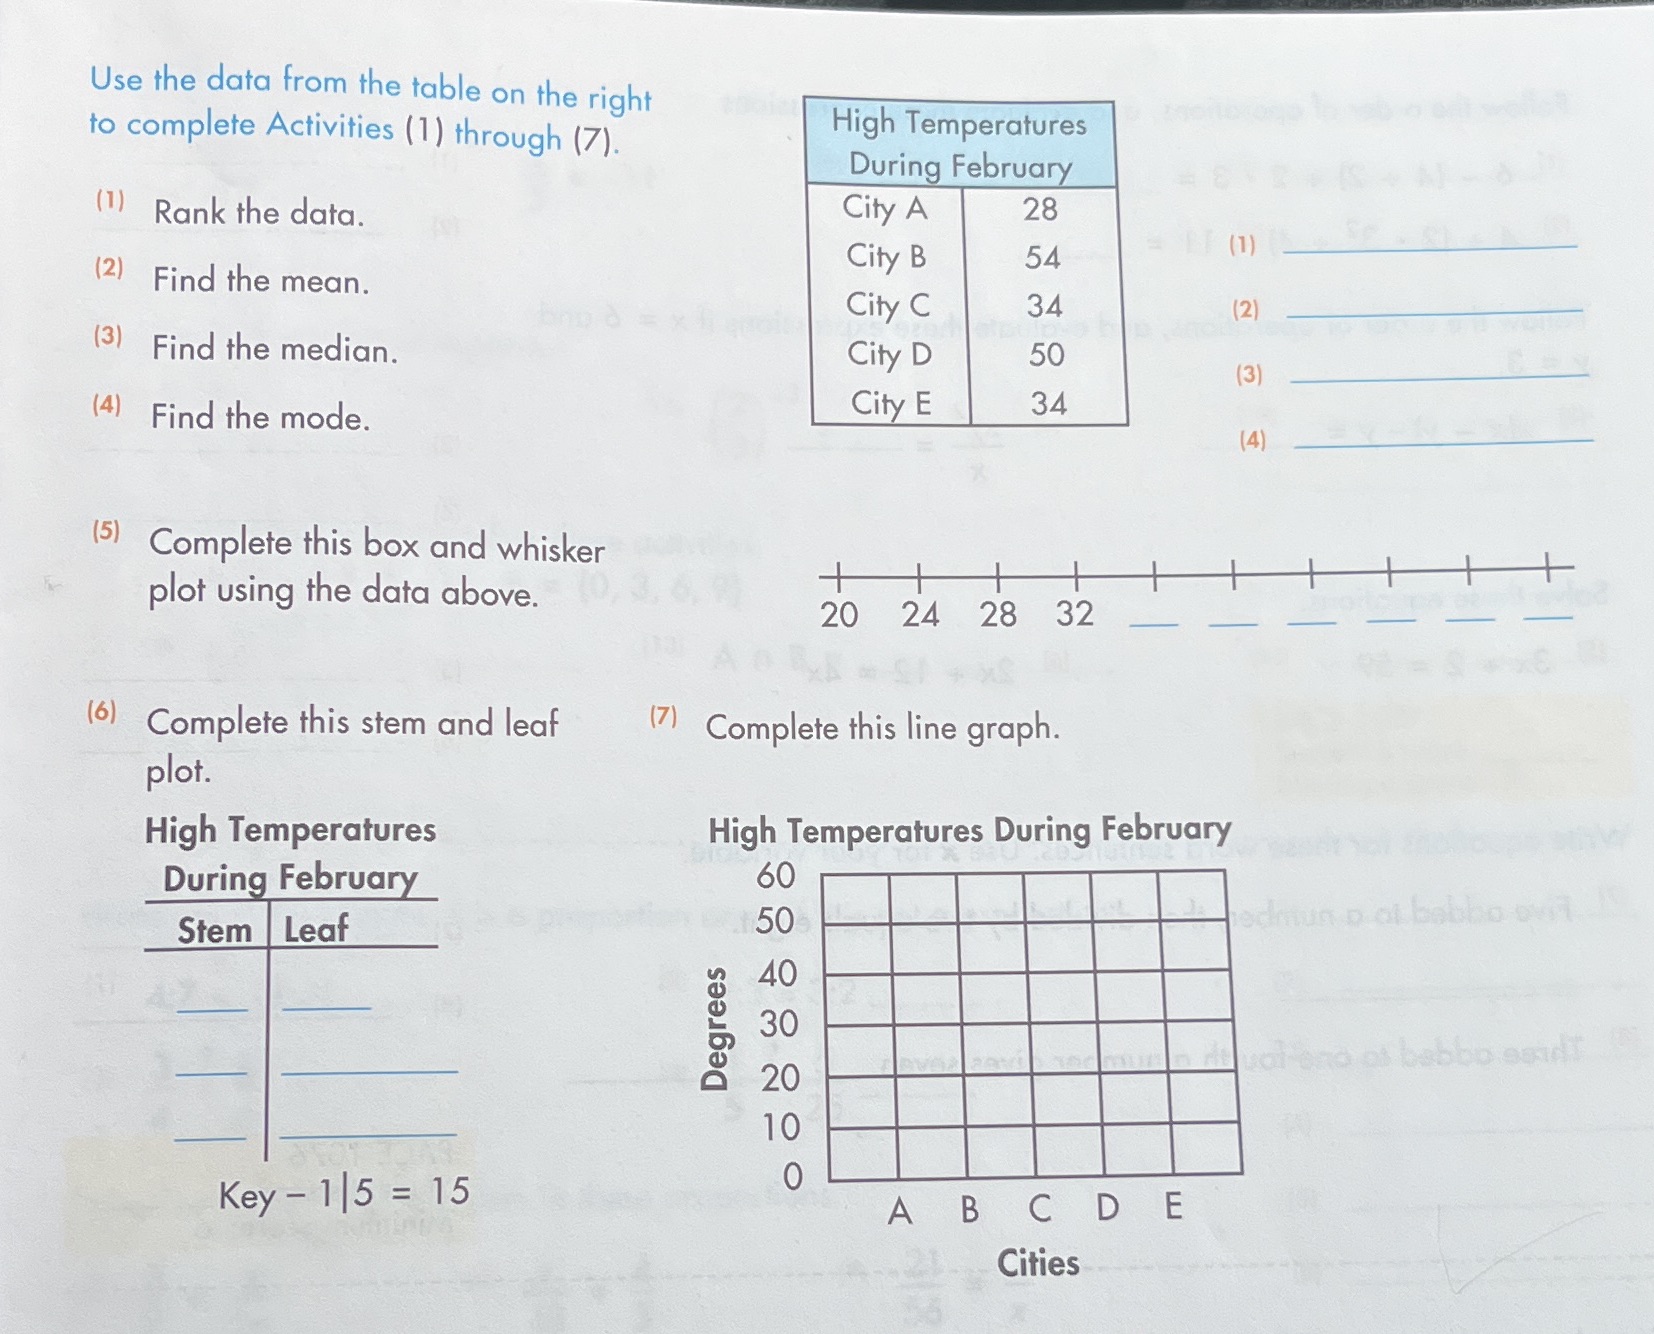 Use the data from the table on the right
to complete Activities (1) through (7).
(1) Rank the data.
(2) Find the mean.
(3) Find the median.
(4) Find the mode.
High Temperatures
During February
City A 28
City B 54
City C 34
City D 50
City E 34
(1)
(2)
(3)
(4)
(5) Complete this box and whisker
plot using the data above.
20 24 28 32
(6) Complete this stem and leaf
plot.
High Temperatures
During February
Stem Leaf
Key – 1|5 = 15
(7) Complete this line graph.
High Temperatures During February
Degrees
60
50
40
30
20
10
0
A B C D E
Cities